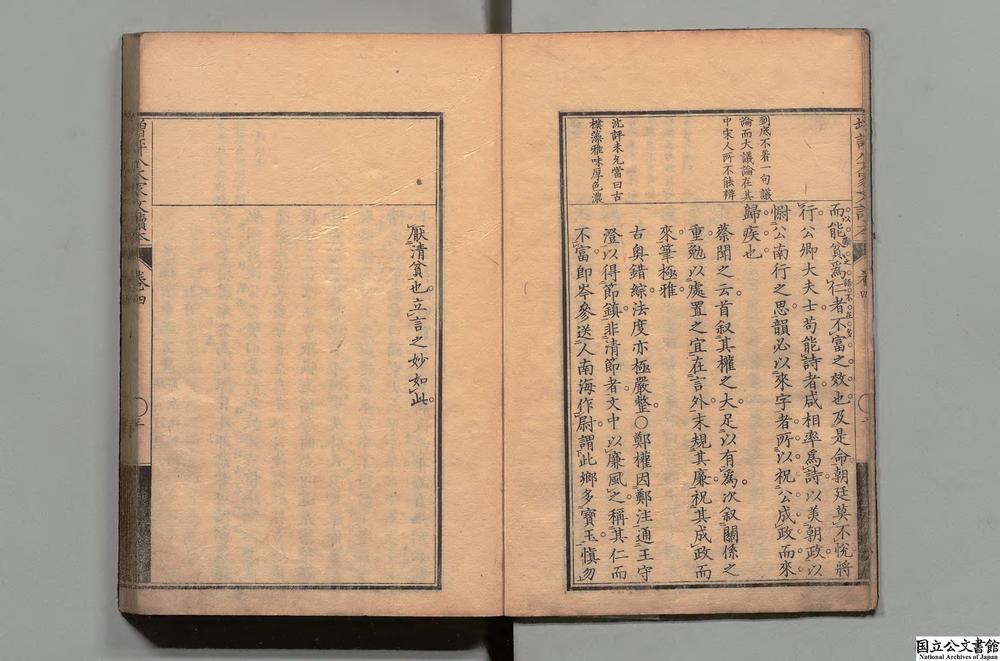 到底不着一句議
論而大議論在其
中宋人所不能辨
沈評未允當曰古
樸藻雅味厚色濃
而能貧爲仁者不富之效也及是命朝廷莫不悅將
行公卿大夫士苟能詩者咸相率爲詩以美朝政以
慰公南行之思韻必以來字者所以祝公成政而來
歸疾也
蔡聞之云首叙其權之大足以有爲次叙關係之
重勉以處置之宜在言外末規其廉祝其成政而
來筆極雅
古奥錯綜法度亦極嚴整○鄭權因鄭注通王守
澄以得節鎮非清節者文中以廉風之稱其仁而
不富即岑參送人南海作尉謂此鄉多寶玉愼勿
厭清貧也立言之妙如此
增評八大家文讀本 卷四
国立公文書館
National Archives of Japan